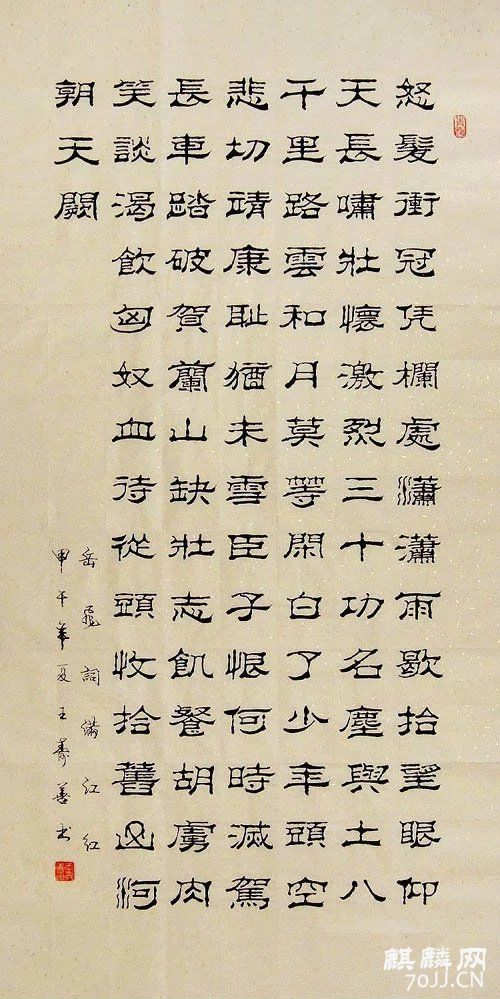 怒髮衝冠凭欄處瀟瀟雨歇抬望眼仰
天長嘯壯懷激烈三十功名塵與土八
千里路雲和月莫等閑白了少年頭空
悲切靖康耻猶未雪臣子恨何時滅駕
長車踏破賀蘭山缺壯志飢餐胡虜肉
笑談渴飲匈奴血待從頭收拾舊山河
朝天闕
岳飛詞滿江紅
甲午年夏王壽善书
麒麟网
70JJ.CN